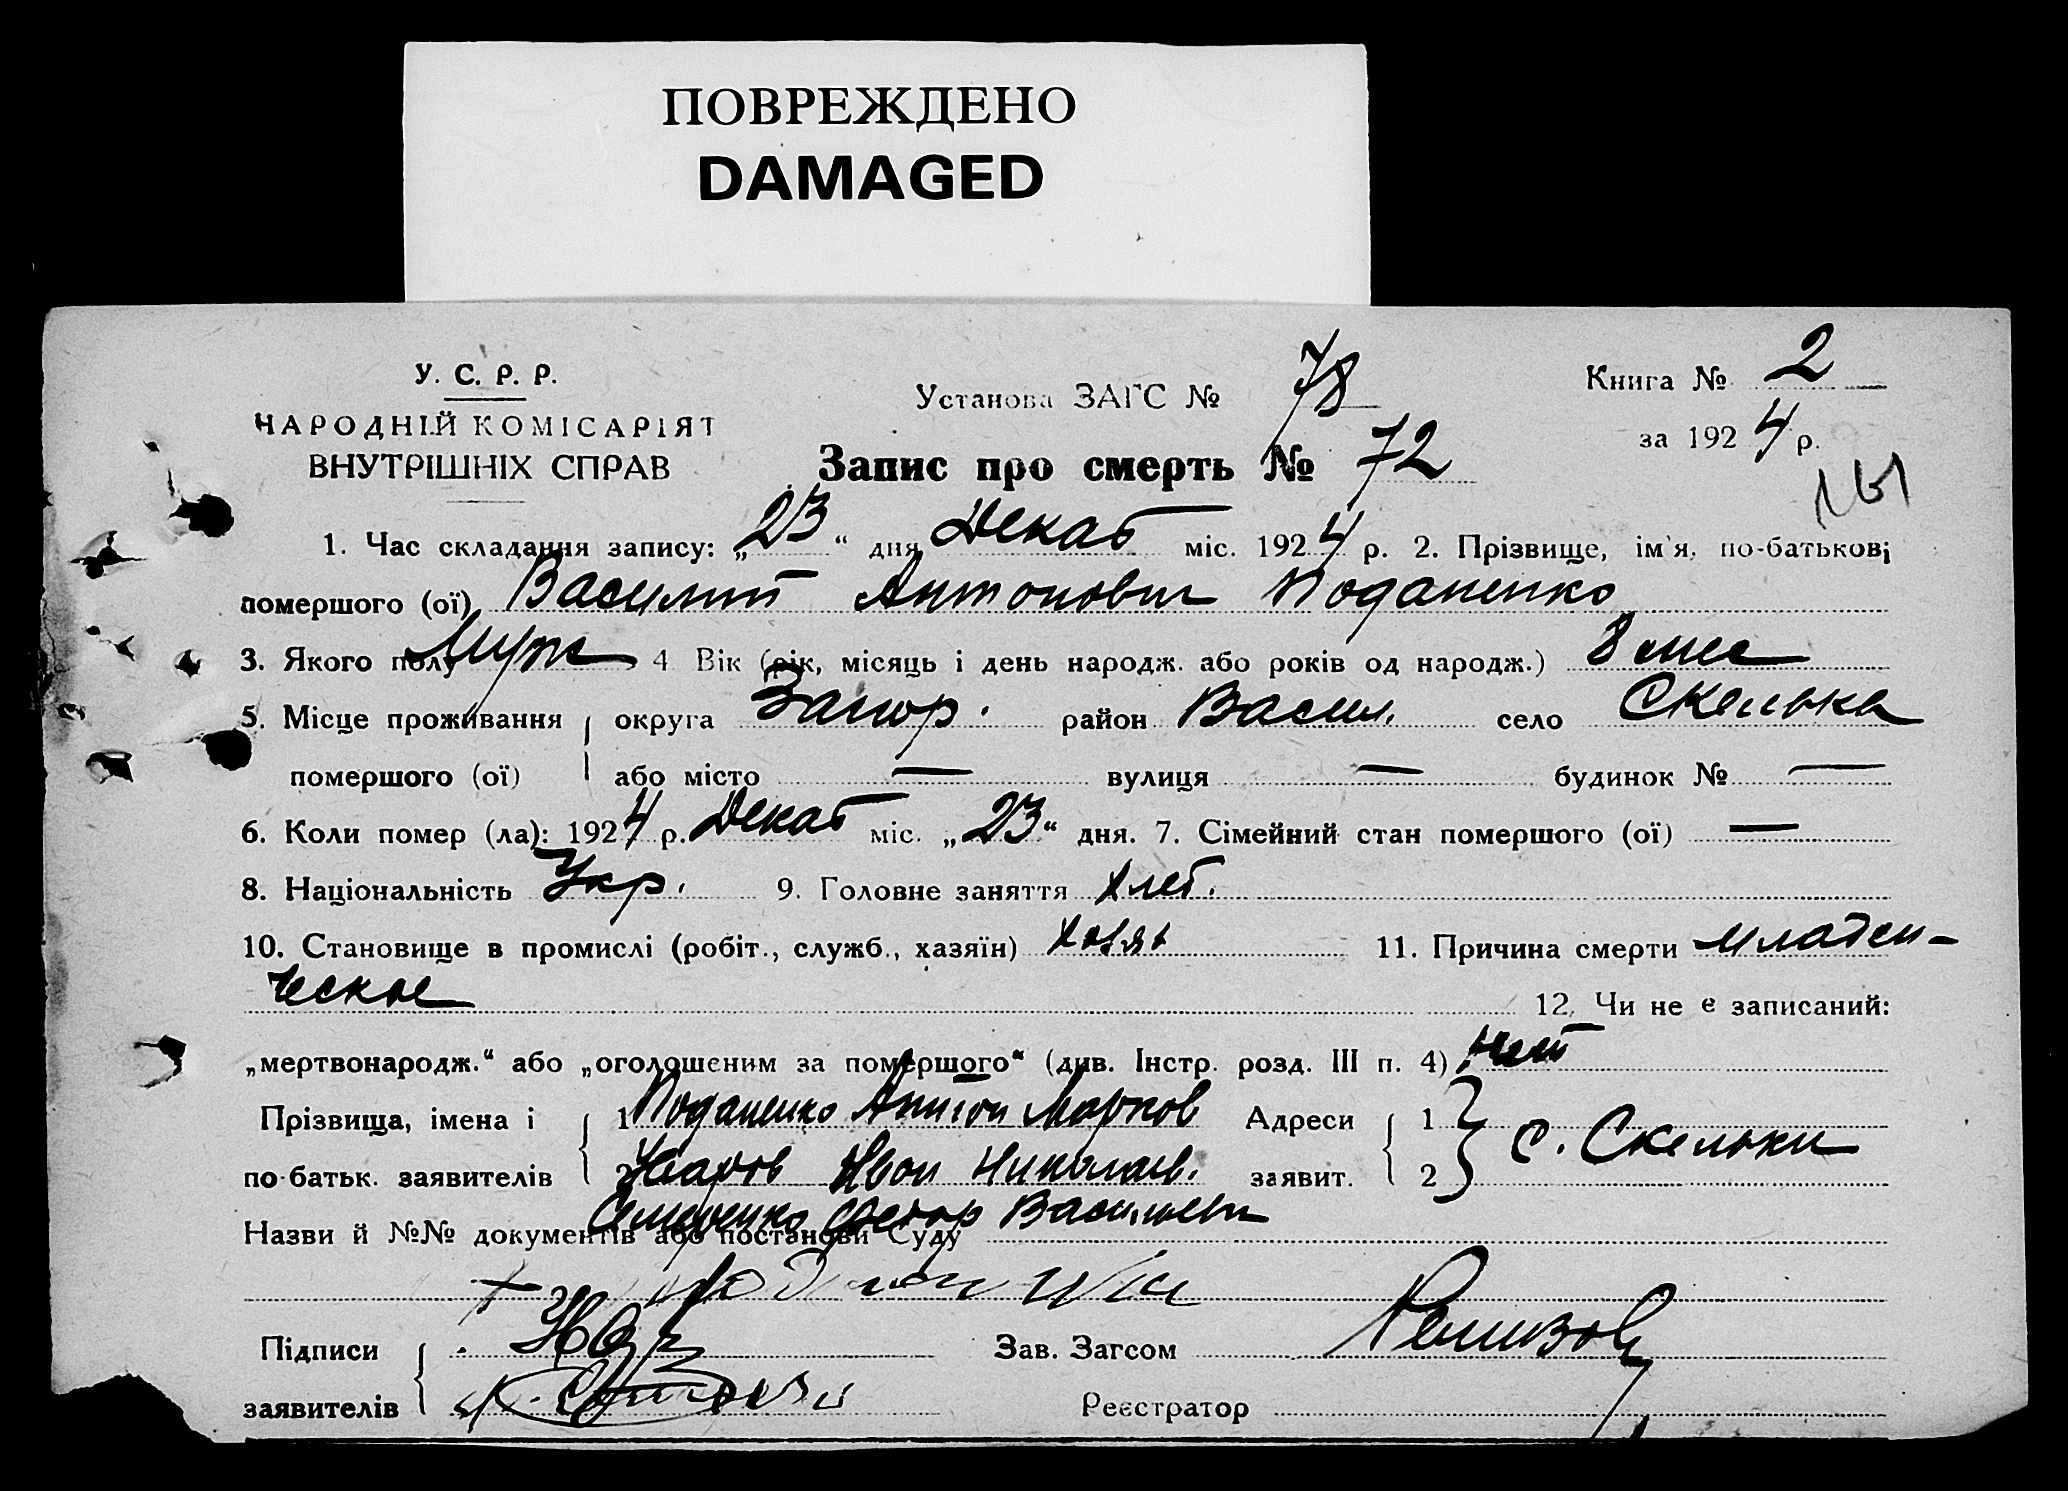 ПОВРЕЖДЕНО
DAMAGED
У. С. Р. Р.
НАРОДНІЙ КОМІСАРІЯТ
ВНУТРІШНІХ СПРАВ
Установа ЗАГС № 78
Книга № 2
за 1924 р.
Запис про смерть № 72
161
1. Час складання запису: „23“ дня Декаб міс. 1924 р. 2. Прізвище, ім'я, по-батькові
помершого (ої) Василий Антонович Поданенко
3. Якого полу Муж 4 Вік (рік, місяць і день народж. або років од народж.) 8 мес
5. Місце проживання округа Запор. район Васил. село Скелька
помершого (ої) або місто — вулиця — будинок № —
6. Коли помер (ла): 1924 р. Декаб міс. „23“ дня. 7. Сімейний стан помершого (ої) —
8. Національність Укр. 9. Головне заняття хлеб.
10. Становище в промислі (робіт., служб., хазяїн) хозяи 11. Причина смерти младен-
ческое 12. Чи не є записаний:
„мертвонародж.“ або „оголошеним за помершого“ (див. Інстр. розд. III п. 4) нет
Прізвища, імена і 1 Поданенко Антон Марков Адреси 1
по-батьк. заявителів 2 Иван Николаев. заявит. 2 с. Скельки
Федор Васильев
Назви й №№ документів або постанови Суду
Підписи Зав. Загсом Ремизов
заявителів Реєстратор